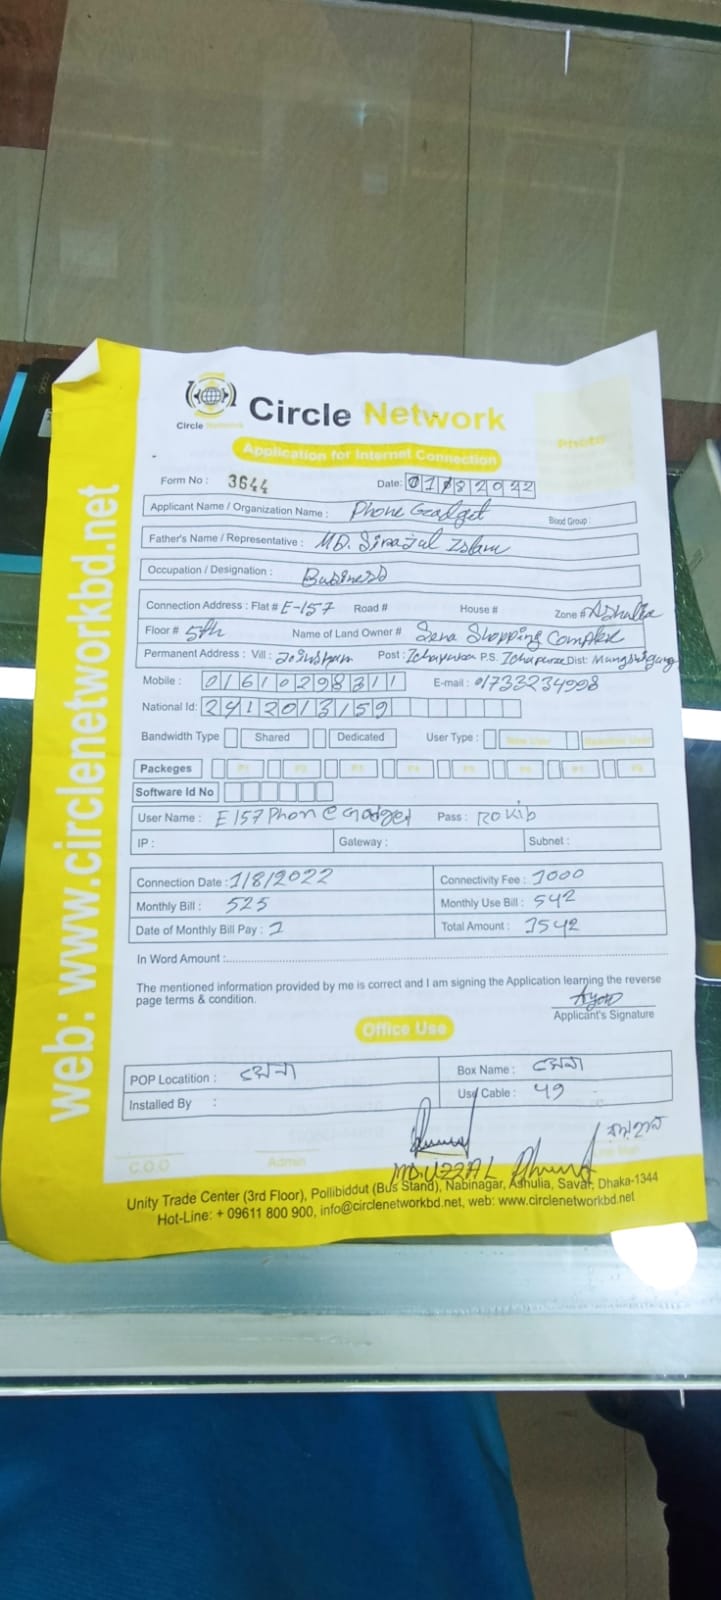 Circle Network
Circle Network
Application for Internet Connection
Photo
Form No : 3644 Date: 01 8 2022
Applicant Name / Organization Name : Phone Geadget Blood Group :
Father's Name / Representative : MD. Sirajul Islam
Occupation / Designation : Business
Connection Address : Flat # E-157 Road # House # Zone # Ashulia
Floor # 5th Name of Land Owner # Sena Shopping Complex
Permanent Address : Vill : Post : P.S. Ichapura Dist:
Mobile : 01610298311 E-mail : 01733234998
National Id: 2412013159
Bandwidth Type Shared Dedicated User Type :
Packeges P1 P2 P3 P4 P5 P6 P7 P8
Software Id No
User Name : E157 Phon e Gadget Pass : Rokib
IP : Gateway : Subnet :
Connection Date : 1/8/2022 Connectivity Fee : 1000
Monthly Bill : 525 Monthly Use Bill : 542
Date of Monthly Bill Pay : 1 Total Amount : 1542
In Word Amount :
The mentioned information provided by me is correct and I am signing the Application learning the reverse
page terms & condition.
Applicant's Signature
Office Use
POP Locatition : সেনা Box Name : সেনা
Installed By : Use Cable : 49
MD. UZZAL
C.O.O Admin
Unity Trade Center (3rd Floor), Pollibiddut (Bus Stand), Nabinagar, Ashulia, Savar, Dhaka-1344
Hot-Line: + 09611 800 900, info@circlenetworkbd.net, web: www.circlenetworkbd.net
web: www.circlenetworkbd.net